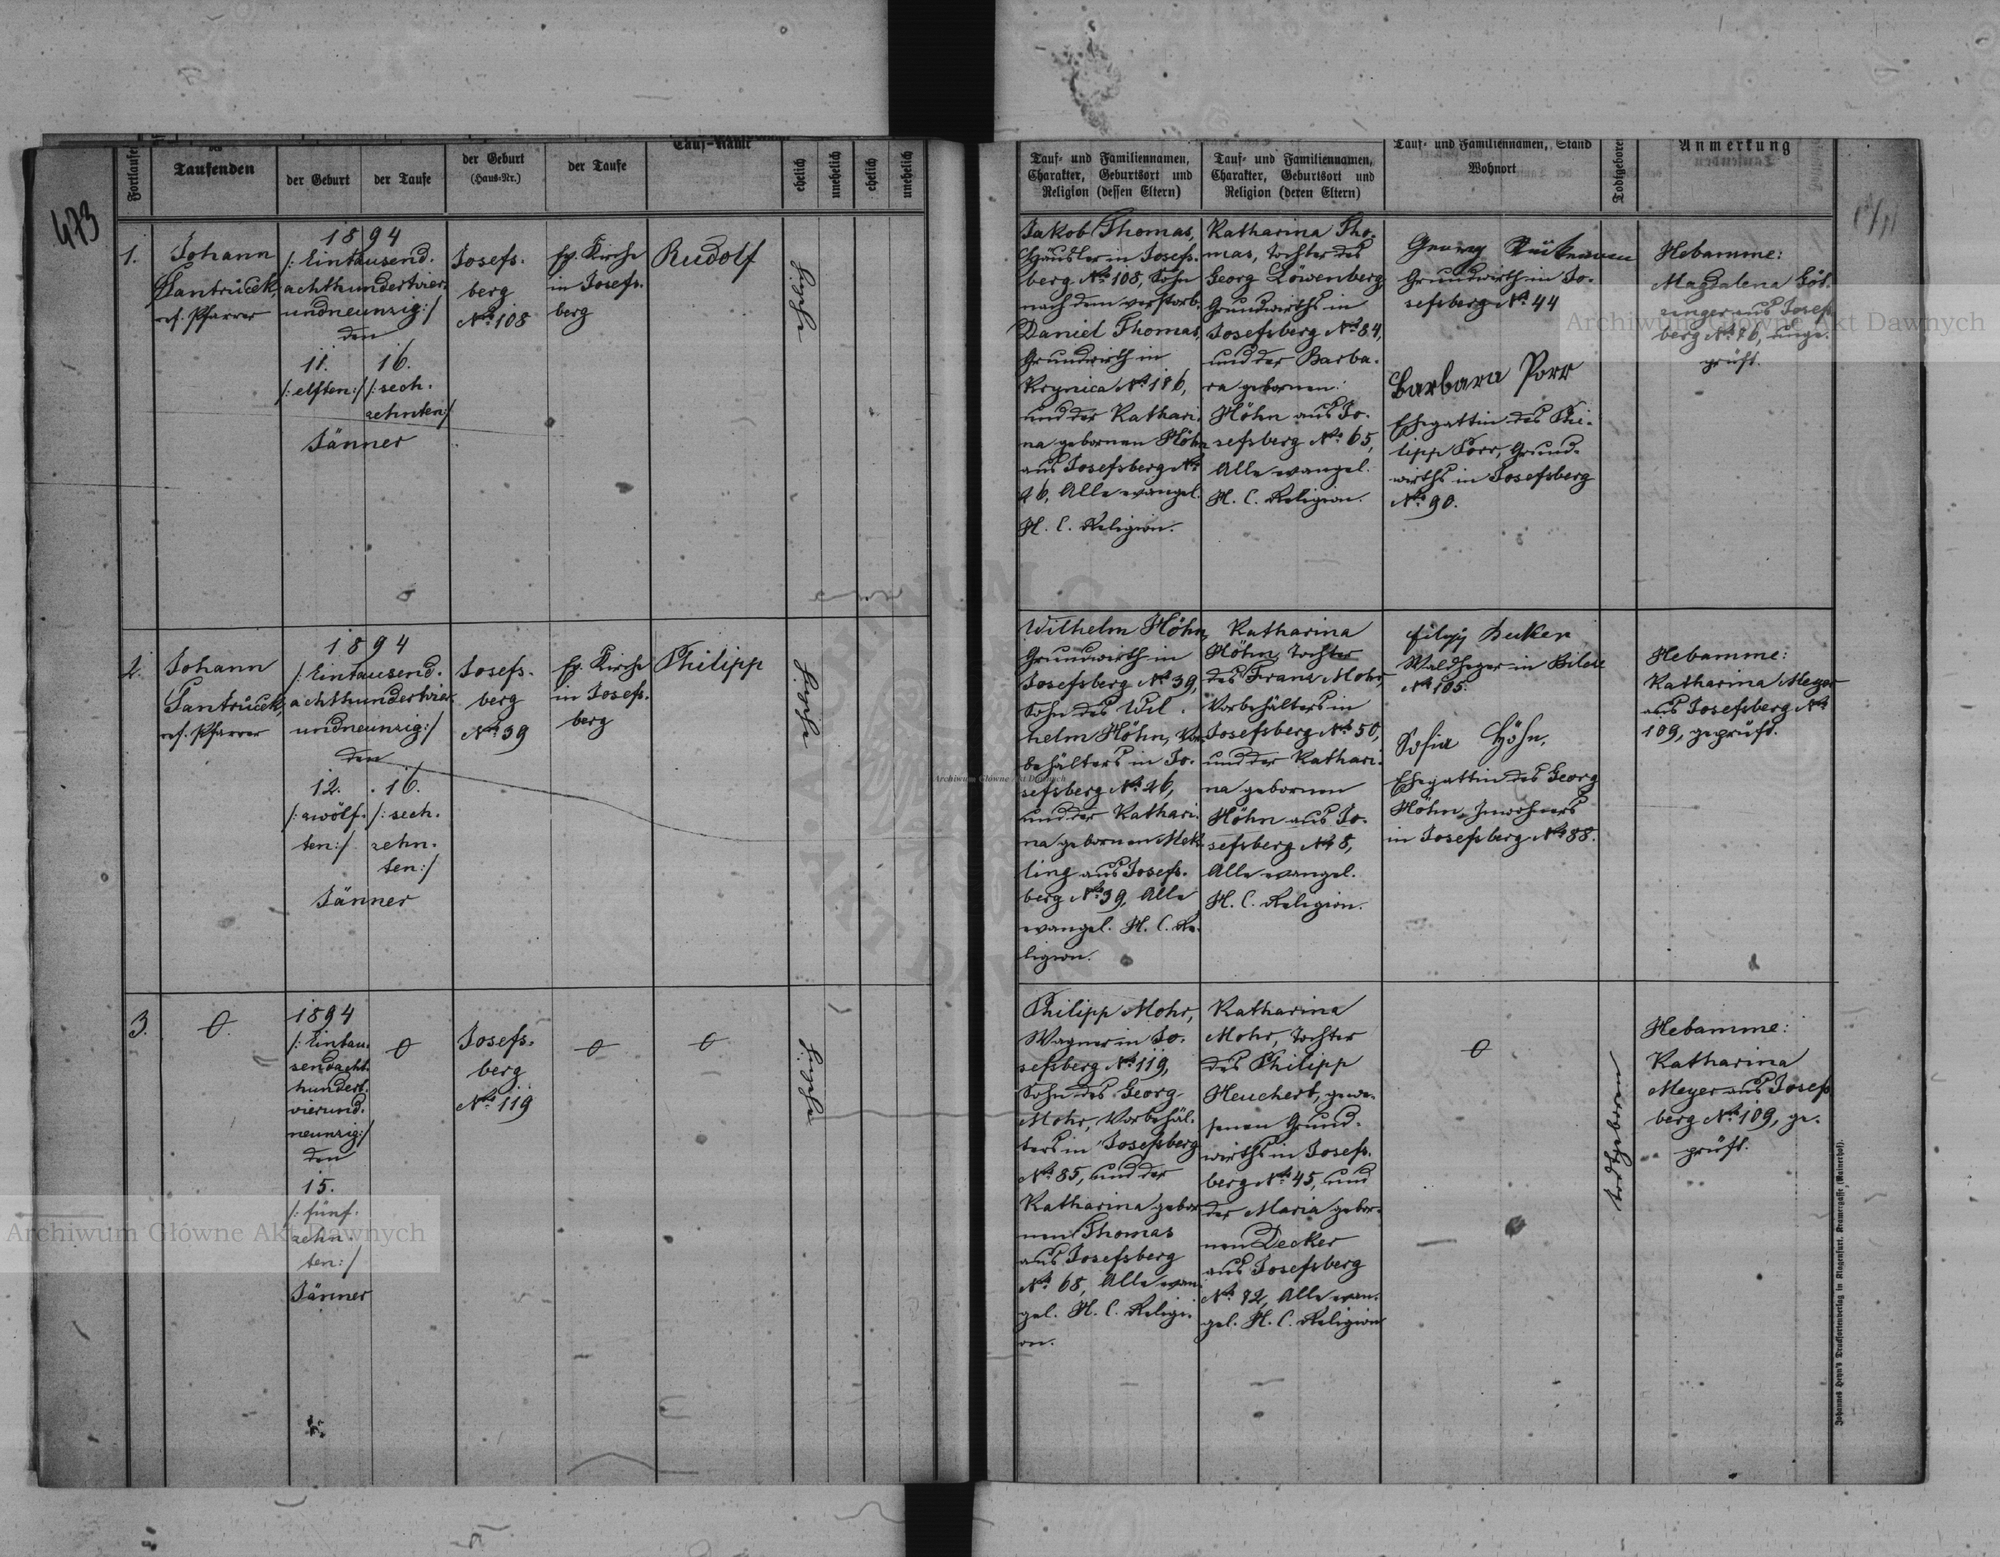 473
Fortlaufe
Taufenden
der Geburt
der Taufe
der Geburt
(Haus-Nr.)
der Taufe
Tauf-Name
ehelich
unehelich
ehelich
unehelich
1.
Johann
Pantrůček,
ref. Pfarrer
1894
/: Eintausend.
achthundertvier.
undneunzig :/
den
11.
/: elften :/
16.
/: sech.
zehnten :/
Jänner
Josefs.
berg
No. 108
Ev. Kirche
in Josefs.
berg
Rudolf
2.
Johann
Pantrůček,
ref. Pfarrer
1894
/: Eintausend.
achthundertvier.
undneunzig :/
den
12.
/: zwölf.
ten :/
16.
/: sech.
zehn.
ten :/
Jänner
Josefs.
berg
No. 39
Ev. Kirche
in Josefs.
berg
Philipp
3.
1894
/: Eintau.
sendacht.
hundert.
vierund.
neunzig :/
den
15.
/: fünf.
zehn.
ten :/
Jänner
Josefs.
berg
No. 119
Tauf- und Familiennamen,
Charakter, Geburtsort und
Religion (dessen Eltern)
Tauf- und Familiennamen,
Charakter, Geburtsort und
Religion (deren Eltern)
Tauf- und Familiennamen, Stand
Wohnort
Todtgeboren
Anmerkung
Jakob Thomas,
Häusler in Josefs.
berg No. 108, Sohn
nach dem verstorb.
Daniel Thomas,
Grundwirth in
Krynica No. 186,
und der Kathari.
na gebornen Höhn
aus Josefsberg No.
46, Alle evangel.
H. C. Religion.
Katharina Tho.
mas, Tochter des
Georg Löwenberg
Grundwirths in
Josefsberg No. 84,
und der Barba.
ra gebornen
Höhn aus Jo.
sefsberg No. 65,
Alle evangel.
H. C. Religion.
Georg
Grundwirth in Jo.
sefsberg No. 44
Barbara Porr
Ehegattin des Phi.
lipp Porr, Grund.
wirths in Josefsberg
No. 90.
Hebamme:
Magdalena
aus Josefs
berg No. 76, unge.
prüft.
Wilhelm Höhn,
Grundwirth in
Josefsberg No. 39,
Sohn des Wil.
helm Höhn, Vor
behälters in Jo.
sefsberg No. 46,
und der Kathari.
na gebornen
aus Josefs.
berg No. 39, Alle
evangel. H. C. Re.
ligion.
Katharina
Höhn, Tochter
des Franz Mohr,
Vorbehälters in
Josefsberg No. 50,
und der Kathari.
na gebornen
Höhn aus Jo.
sefsberg No. 8,
Alle evangel.
H. C. Religion.
Filipp Decker
Waldheger in Bilcze
No. 105.
Sofia Höhn,
Ehegattin des Georg
Höhn, Inwohners
in Josefsberg No. 88.
Hebamme:
Katharina Meyer
aus Josefsberg No.
109, geprüft.
Philipp Mohr,
Wagner in Jo.
sefsberg No. 119,
Sohn des Georg
Mohr, Vorbehäl.
ters in Josefsberg
No. 85, und der
Katharina gebor
nen Thomas
aus Josefsberg
No. 68, Alle evan.
gel. H. C. Religi.
on.
Katharina
Mohr, Tochter
des Philipp
Heuchert, gewe.
senen Grund.
wirths in Josefs.
berg No. 45, und
der Maria gebor.
nen Decker
aus Josefsberg
No. 72, Alle evan.
gel. H. C. Religion
todtgeboren
Hebamme:
Katharina
Meyer aus Josefs
berg No. 109, ge.
prüft.
Johannes Heyn's Drucksortenverlag in Klagenfurt, Kramergasse (Rainerhof).
Archiwum Główne Akt Dawnych
Archiwum Główne Akt Dawnych
Archiwum Główne Akt Dawnych